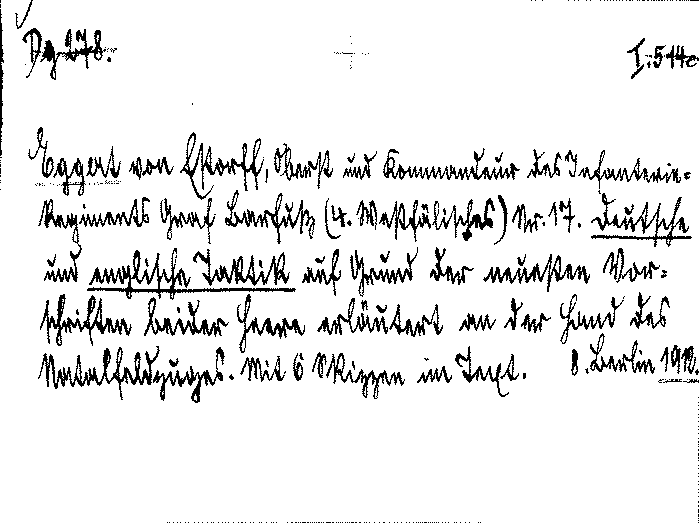 Dg 278. I. 514c
Eggat von Estorff, Oberst und Kommandeur des Infanterie-
Regiments Graf Barfuß (4. Westfälisches) Nr. 17. Deutsche
und englische Taktik auf Grund der neuesten Vor-
schriften beider Heere erläutert an der Hand des
Natalfeldzuges. Mit 6 Skizzen im Text. 8. Berlin 1912.